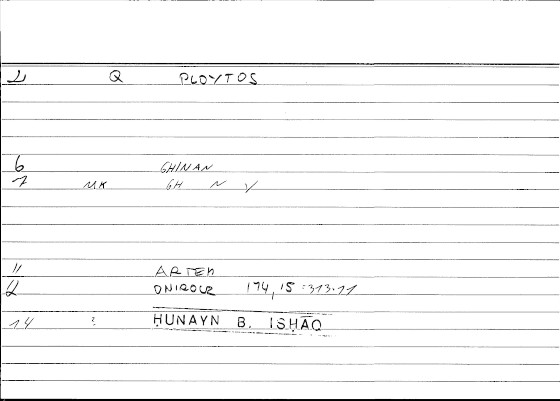 1 Q PLOYTOS
6 GHINAN
7 MK GH N Y
11 ARTEM
12 ONIROCR 174,15 : 313.11
14 ? ḤUNAYN B. ISḤĀQ